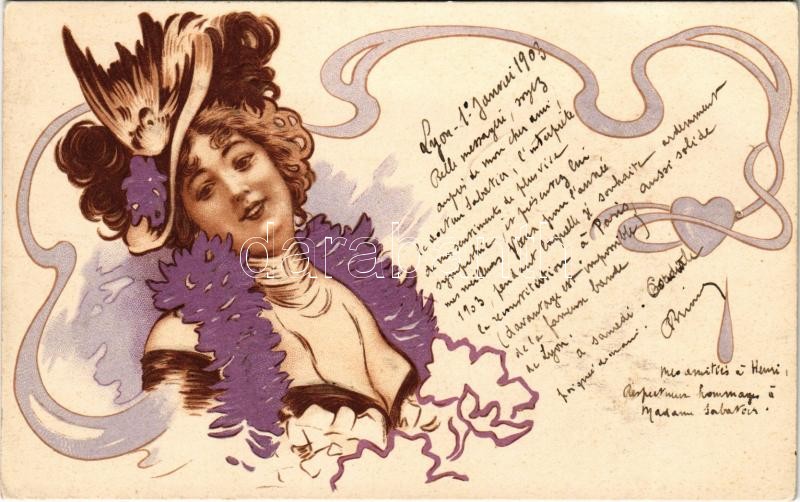 Lyon - 1º Janvier 1903
Belle messagère, soyez
auprès de mon cher ami
le docteur Sabatier, l'interprète
de mes sentiments de plus vive
sympathie, et présentez lui
mes meilleurs vœux pour l'année
1903, pendant laquelle je souhaite ardemment
la reconstitution, à Paris, aussi solide
(davantage est impossible)
de la fameuse bande
de Lyon.
à samedi. Cordiale
poignée de main.
mes amitiés à Henri,
Respectueux hommages à
Madame Sabatier.
darabanth